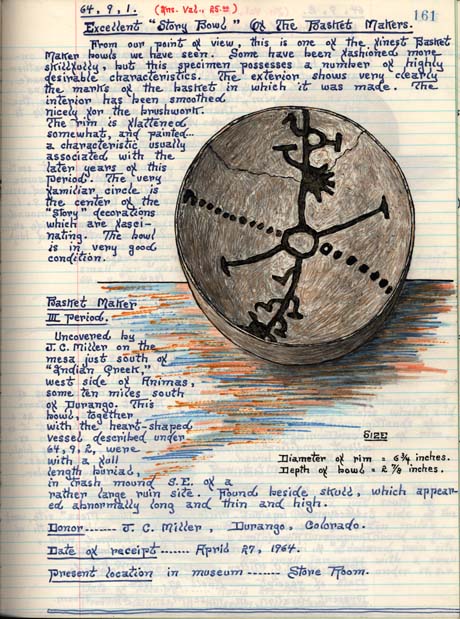 161
64.9.1. (Ins. Val., 25.00)
Excellent "Story Bowl" Of The Basket Makers.
From our point of view, this is one of the finest Basket
Maker bowls we have seen. Some have been fashioned more
skillfully, but this specimen possesses a number of highly
desirable characteristics. The exterior shows very clearly
the marks of the basket in which it was made. The
interior has been smoothed
nicely for the brushwork.
The rim is flattened
somewhat, and painted...
a characteristic usually
associated with the
later years of this
period. The very
familiar circle is
the center of the
"story" decorations
which are fasci-
nating. The bowl
is in very good
condition.
Basket Maker
III Period.
Uncovered by
J.C. Miller on the
mesa just south of
"Indian Creek,"
west side of Animas,
some ten miles south
of Durango. This
bowl, together
with the heart-shaped
vessel described under
64.9.2, were
with a full
length burial,
in trash mound S.E. of a
rather large ruin site. Found beside skull, which appear-
ed abnormally long and thin and high.
SIZE
Diameter of rim = 6 3/4 inches.
Depth of bowl = 2 7/8 inches.
Donor ------- J. C. Miller, Durango, Colorado.
Date of receipt ------ April 27, 1964.
Present location in museum ------- Store Room.